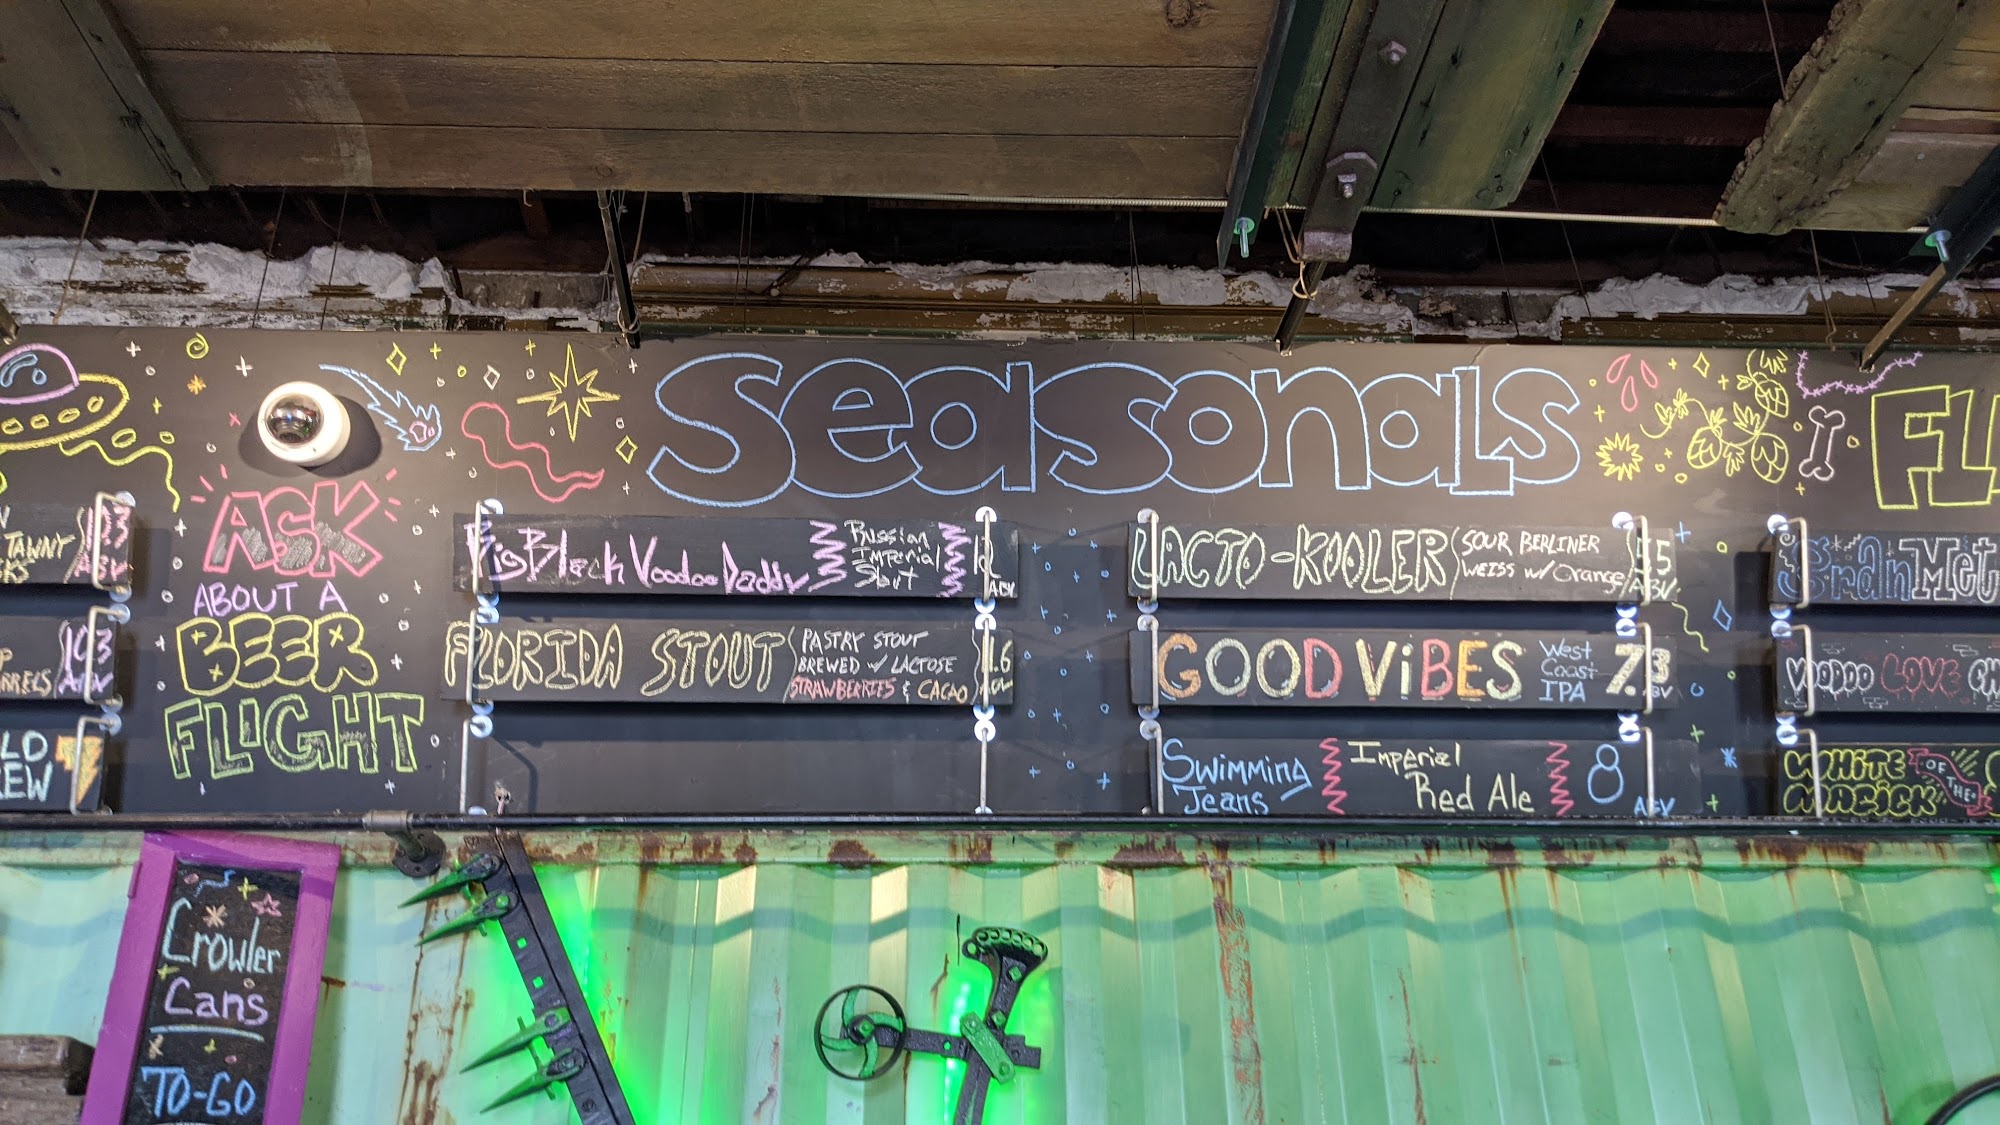 TAWNY
10.3
ABV
10.3
ABV
RRELS
LD
REW
ASK
ABOUT A
BEER
FLIGHT
Seasonals
Big Black Voodoo Daddy
Russian
Imperial
Stout
12
ABV
FLORIDA STOUT
PASTRY STOUT
BREWED W/ LACTOSE
STRAWBERRIES & CACAO
.6
LACTO-KOOLER
SOUR BERLINER
WEISS W/ Orange
5.5
ABV
GOOD ViBES
West
Coast
IPA
7.3
ABV
Swimming
Jeans
Imperial
Red Ale
8
ABV
FL
Gran Met
VOODOO LOVE
WHiTE
MAGICK
OF THE
Crowler
Cans
TO-GO